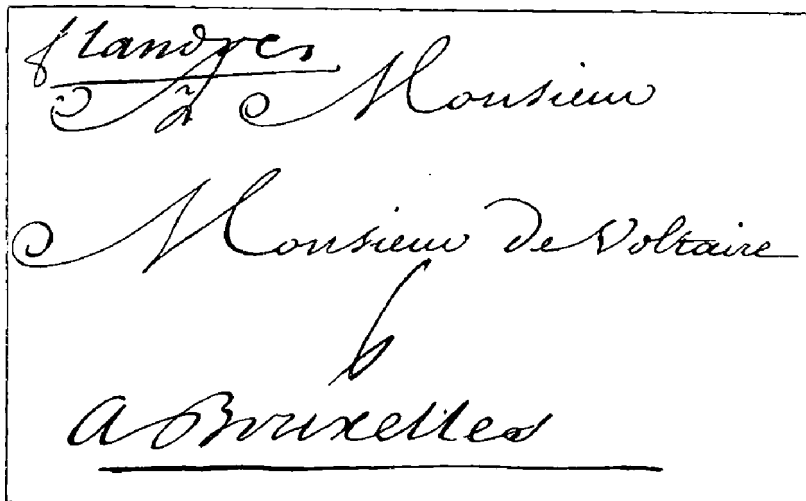 flandres
A Monsieur
Monsieur De Voltaire
6
A Bruxelles